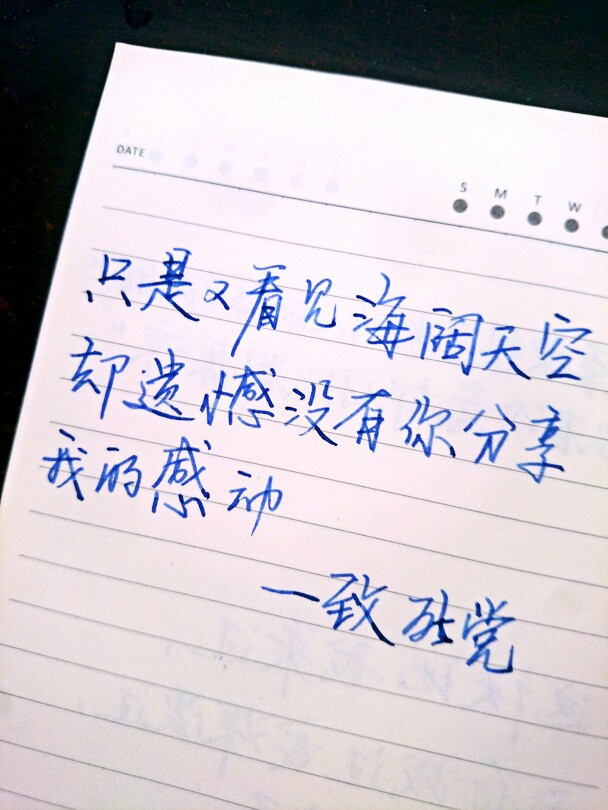 DATE
S M T W
只是又看见海阔天空
却遗憾没有你分享
我的感动
—致死党